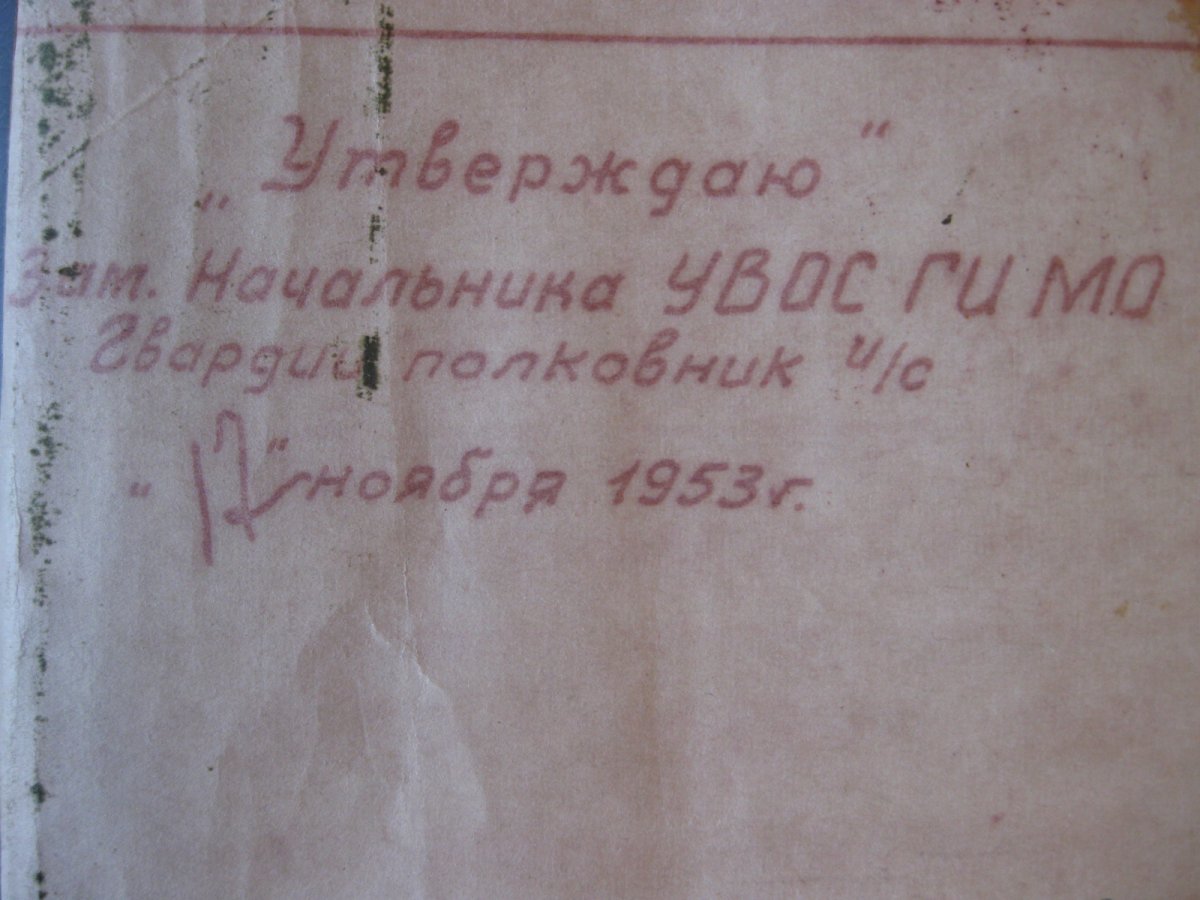 „Утверждаю“
Зам. Начальника УВОС ГИ МО
Гвардии полковник и/с
„17“ ноября 1953 г.